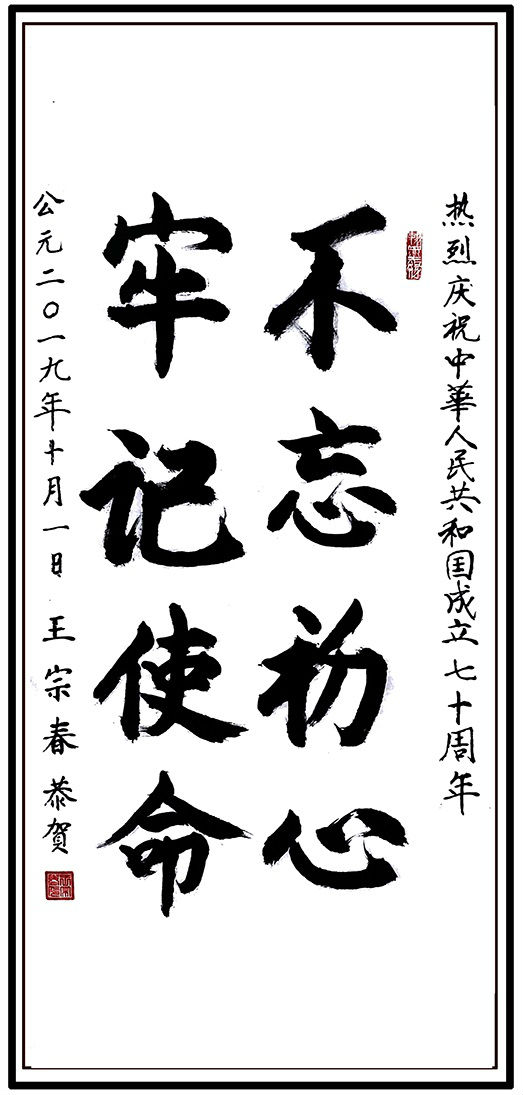 热烈庆祝中華人民共和国成立七十周年
不忘初心
牢记使命
公元二〇一九年十月一日王宗春恭贺